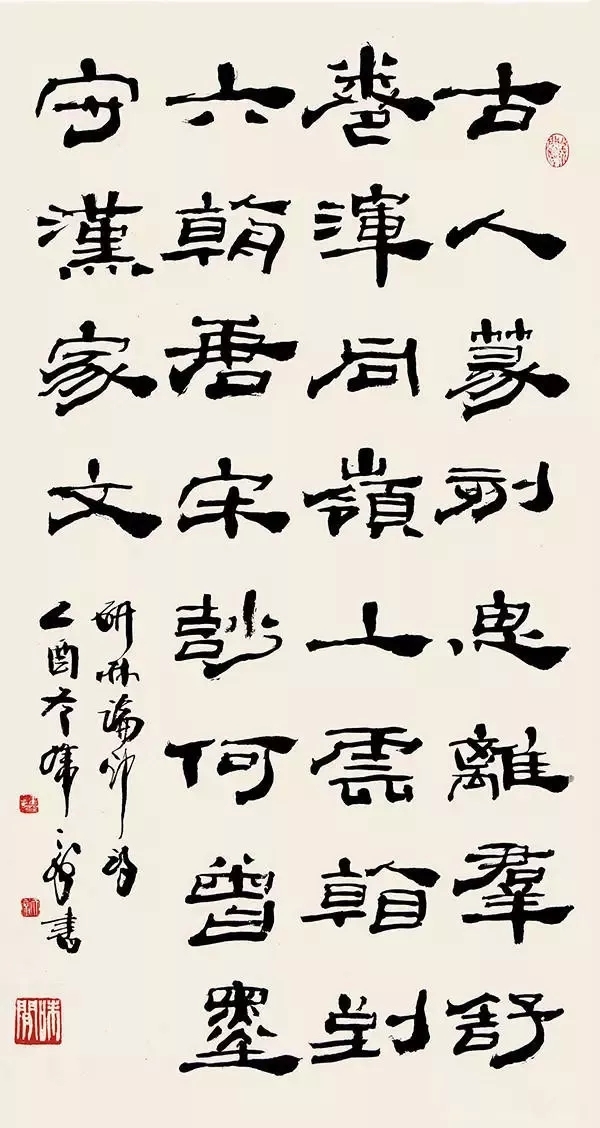 古人篆刻思離羣舒
卷渾同嶺上雲看到
六朝唐宋妙何曾墨
守漢家文
研林論印詩
乙酉 書